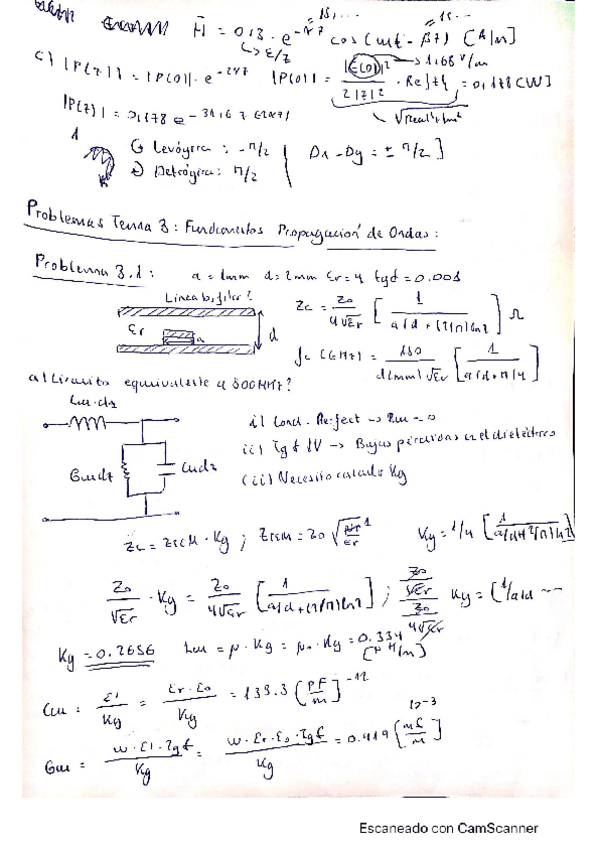 H̄ = 0,13 · e^-αz cos(ωt - βz) [A/m]
↳ E/Z
c) |P(z)| = |P(0)| · e^-2αz |P(0)| = |E(0)|²/2|Z|² · Re{Z} = 0,178 [W] → 1.68 V/m
|P(z)| = 0,178 e^-31.6 z
Levógira: -π/2
Dextrógira: π/2
Dx - Dy = ± π/2 ]
Problemas Tema 3: Fundamentos Propagación de Ondas:
Problema 3.1: a = 1mm d = 2mm εr = 4 tgδ = 0.001
Línea bifilar?
εr a d
Zc = Z0/4√εr [ 1/a/d + (2/π)ln2 ] Ω
fc (GHz) = 150/d(mm)√εr [ 1/a/d + π/4 ]
a) Circuito equivalente a 800MHz?
Lu·dz
Gudz Cudz
i) Cond. Perfect → Ru = 0
ii) Tgδ ↓↓ → Bajas pérdidas en el dieléctrico
iii) Necesito calcular Kg
Zc = ZTEM · Kg ; ZTEM = Z0 √μr/εr Kg = 1/4 [ 1/a/d + (2/π)ln2 ]
Z0/√εr · Kg = Z0/4√εr [ 1/a/d + (2/π)ln2 ] ;
Kg = 0.2656 Lu = μ · Kg = μ0 · Kg = 0.334 [μH/m]
Cu = ε'/Kg = εr·ε0/Kg = 133.3 [pF/m] -12
Gu = w·ε'·Tgδ/Kg = w·εr·ε0·Tgδ/Kg = 0.419 [mS/m] 10^-3
Escaneado con CamScanner